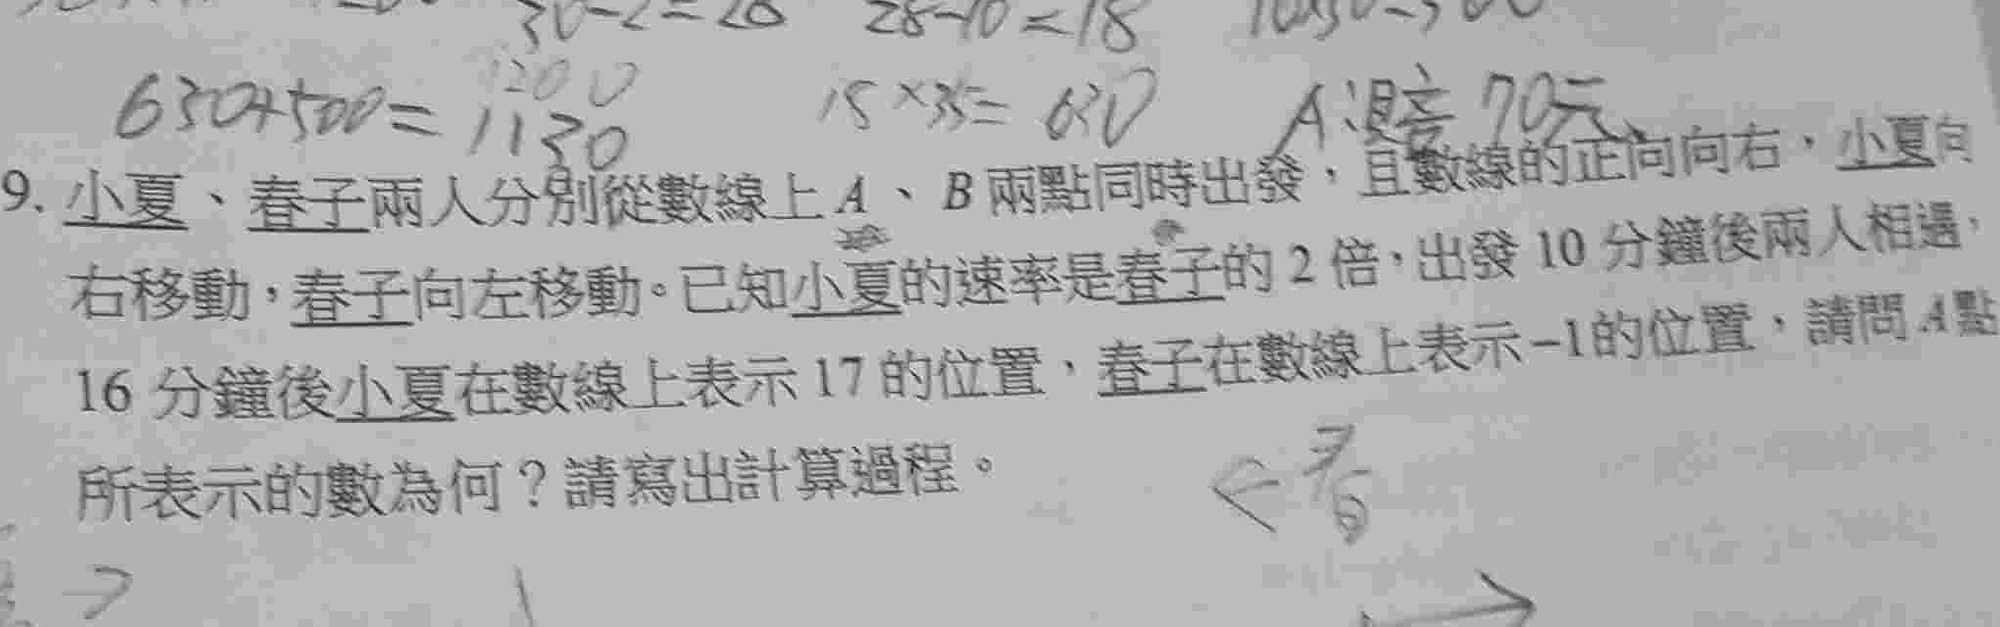 30-2=28 28-10=18
630+500= 1130 1200 18×35=630 A:混音 70元
9. 小夏、春子兩人分別從數線上A、B兩點同時出發，且數線的正向向右，小夏向
右移動，春子向左移動。已知小夏的速率是春子的2倍，出發10分鐘後兩人相遇，
16分鐘後小夏在數線上表示17的位置，春子在數線上表示-1的位置，請問A點
所表示的數為何？請寫出計算過程。